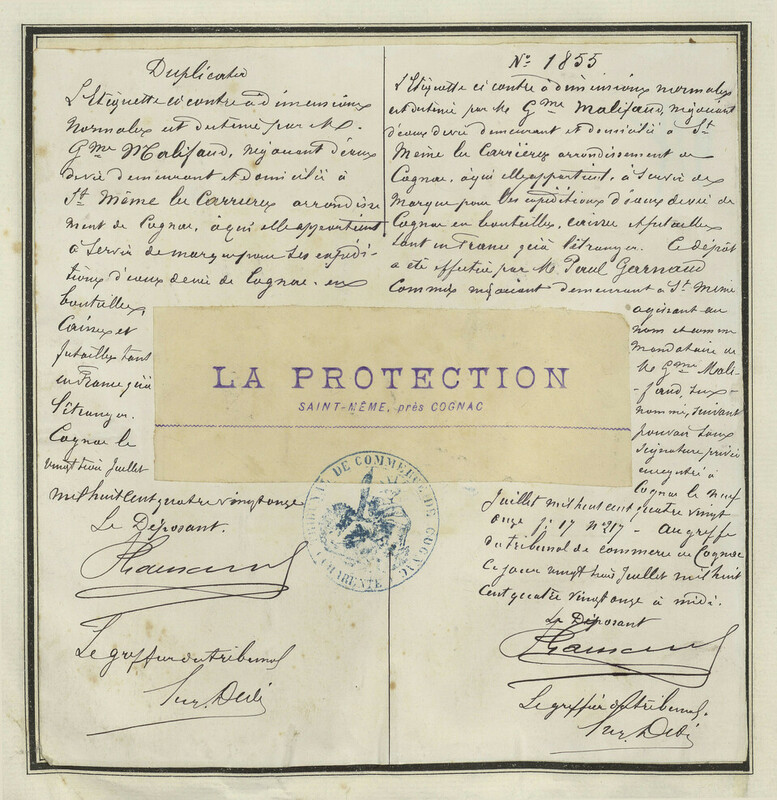 Duplicata
L'Etiquette ci contre à dimensions
normales est destiné par M.
Gme Malifaud, négociant d'eaux
de vie demeurant et domicilié à
St Même les Carrières arrondisse
ment de Cognac, à qui elle appartient
à servir de marque pour ses expédi-
tions d'eaux de vie de Cognac en
bouteilles,
Caisses et
futailles tant
en France qu'à
l'étranger.
Cognac le
vingt trois Juillet
mil huit cent quatre vingt onze
Le Déposant.
Le greffier du tribunal
No 1855
L'Etiquette ci contre à dimensions normales
est destiné par M. Gme Malifaud, négociant
d'eaux de vie demeurant et domicilié à St
Même les Carrières arrondissement de
Cognac, à qui elle appartient, à servir de
marque pour ses expéditions d'eaux de vie de
Cognac en bouteilles, caisses et futailles
tant en France qu'à l'étranger. Ce dépôt
a été effectué par M. Paul Garnaud
Commis négociant demeurant à St Même
agissant au
nom et comme
mandataire de
M. Gme Mali-
faud, sus-
nommé, suivant
pouvoir sous
signature privée
enregistré à
Cognac le neuf
Juillet mil huit cent quatre vingt
onze fo 17 No 217 - Au greffe
du tribunal de commerce de Cognac
ce jour vingt trois Juillet mil huit
cent quatre vingt onze à midi.
Le Déposant
Le greffier du tribunal.
LA PROTECTION
SAINT-MÊME, près COGNAC
TRIBUNAL DE COMMERCE DE COGNAC
CHARENTE